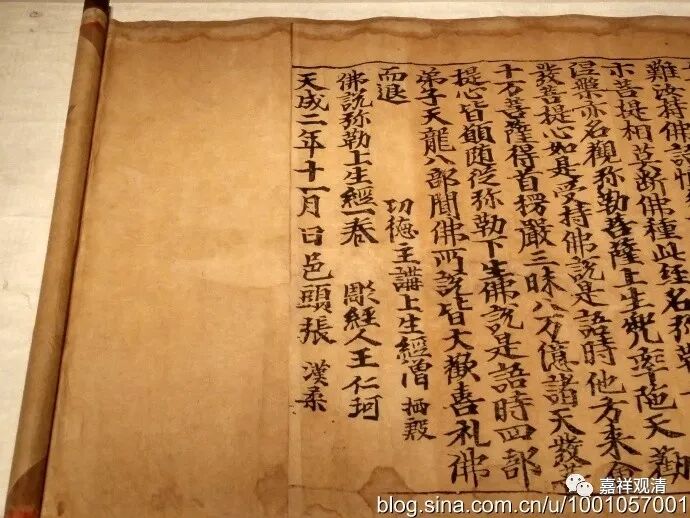 難汝持佛語
示菩提相莫断佛種此経名弥勒
涅槃亦名觀弥勒菩薩上生兜率陁天勸
發菩提心如是受持佛說是語時他方来會
十万菩薩得首楞嚴三昧八万億諸天發菩
提心皆願随従弥勒下生佛說是語時四部
弟子天龍八部聞佛所說皆大歡喜礼佛
而退
功徳主講上生經僧 栖殷
佛說弥勒上生經一卷 彫經人王仁珂
天成二年十一月 日邑頭張 漢柔
嘉祥观清
blog.sina.com.cn/u/1001057001